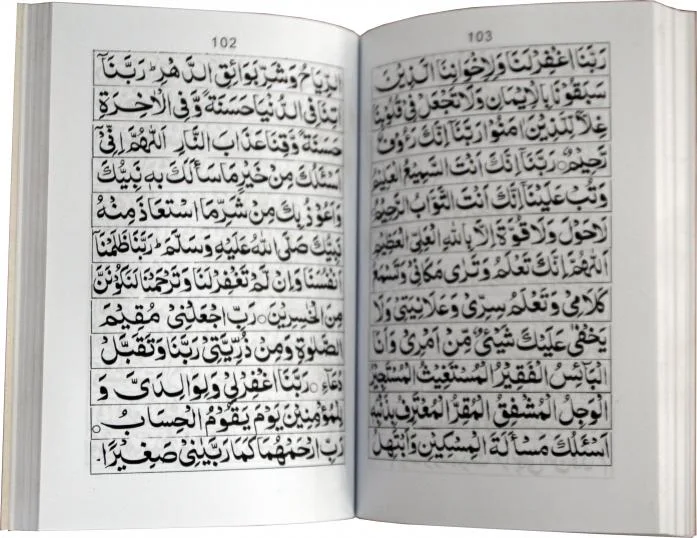 102
الرِّيَاحُ وَشَرِّ بَوَائِقِ الدَّهْرِ ؕ رَبَّنَاۤ
اٰتِنَا فِی الدُّنْیَا حَسَنَةً وَّ فِی الْاٰخِرَةِ
حَسَنَةً وَّقِنَا عَذَابَ النَّارِ اَللّٰهُمَّ اِنِّیْۤ
اَسْئَلُكَ مِنْ خَیْرِ مَا سَاَلَكَ بِهٖ نَبِیُّكَ
وَاَعُوْذُ بِكَ مِنْ شَرِّ مَا اسْتَعَاذَ مِنْهُ
نَبِیُّكَ صَلَّی اللهُ عَلَیْهِ وَسَلَّمَ ؕ رَبَّنَا ظَلَمْنَاۤ
اَنْفُسَنَا وَاِنْ لَّمْ تَغْفِرْ لَنَا وَتَرْحَمْنَا لَنَكُوْنَنَّ
مِنَ الْخٰسِرِیْنَ ○ رَبِّ اجْعَلْنِیْ مُقِیْمَ
الصَّلٰوةِ وَمِنْ ذُرِّیَّتِیْ رَبَّنَا وَتَقَبَّلْ
دُعَآءِ ○ رَبَّنَا اغْفِرْلِیْ وَلِوَالِدَیَّ وَ
لِلْمُؤْمِنِیْنَ یَوْمَ یَقُوْمُ الْحِسَابُ ○
رَبِّ ارْحَمْهُمَا كَمَا رَبَّیَانِیْ صَغِیْرًا.
103
رَبَّنَا اغْفِرْ لَنَا وَلِاِخْوَانِنَا الَّذِیْنَ
سَبَقُوْنَا بِالْاِیْمَانِ وَلَا تَجْعَلْ فِیْ قُلُوْبِنَا
غِلًّا لِّلَّذِیْنَ اٰمَنُوْا رَبَّنَاۤ اِنَّكَ رَءُوْفٌ
رَّحِیْمٌ ○ رَبَّنَاۤ اِنَّكَ اَنْتَ السَّمِیْعُ الْعَلِیْمُ
وَتُبْ عَلَیْنَاۤ اِنَّكَ اَنْتَ التَّوَّابُ الرَّحِیْمُ
لَاحَوْلَ وَلَا قُوَّةَ اِلَّا بِاللهِ الْعَلِیِّ الْعَظِیْمِ
اَللّٰهُمَّ اِنَّكَ تَعْلَمُ وَتَرٰی مَكَانِیْ وَتَسْمَعُ
كَلَامِیْ وَتَعْلَمُ سِرِّیْ وَعَلَانِیَتِیْ وَلَا
یَخْفٰی عَلَیْكَ شَیْئٌ مِّنْ اَمْرِیْ وَاَنَا
الْبَآئِسُ الْفَقِیْرُ الْمُسْتَغِیْثُ الْمُسْتَجِیْرُ
الْوَجِلُ الْمُشْفِقُ الْمُقِرُّ الْمُعْتَرِفُ بِذَنْبِهٖ
اَسْئَلُكَ مَسْاَلَةَ الْمِسْكِیْنِ وَاَبْتَهِلُ